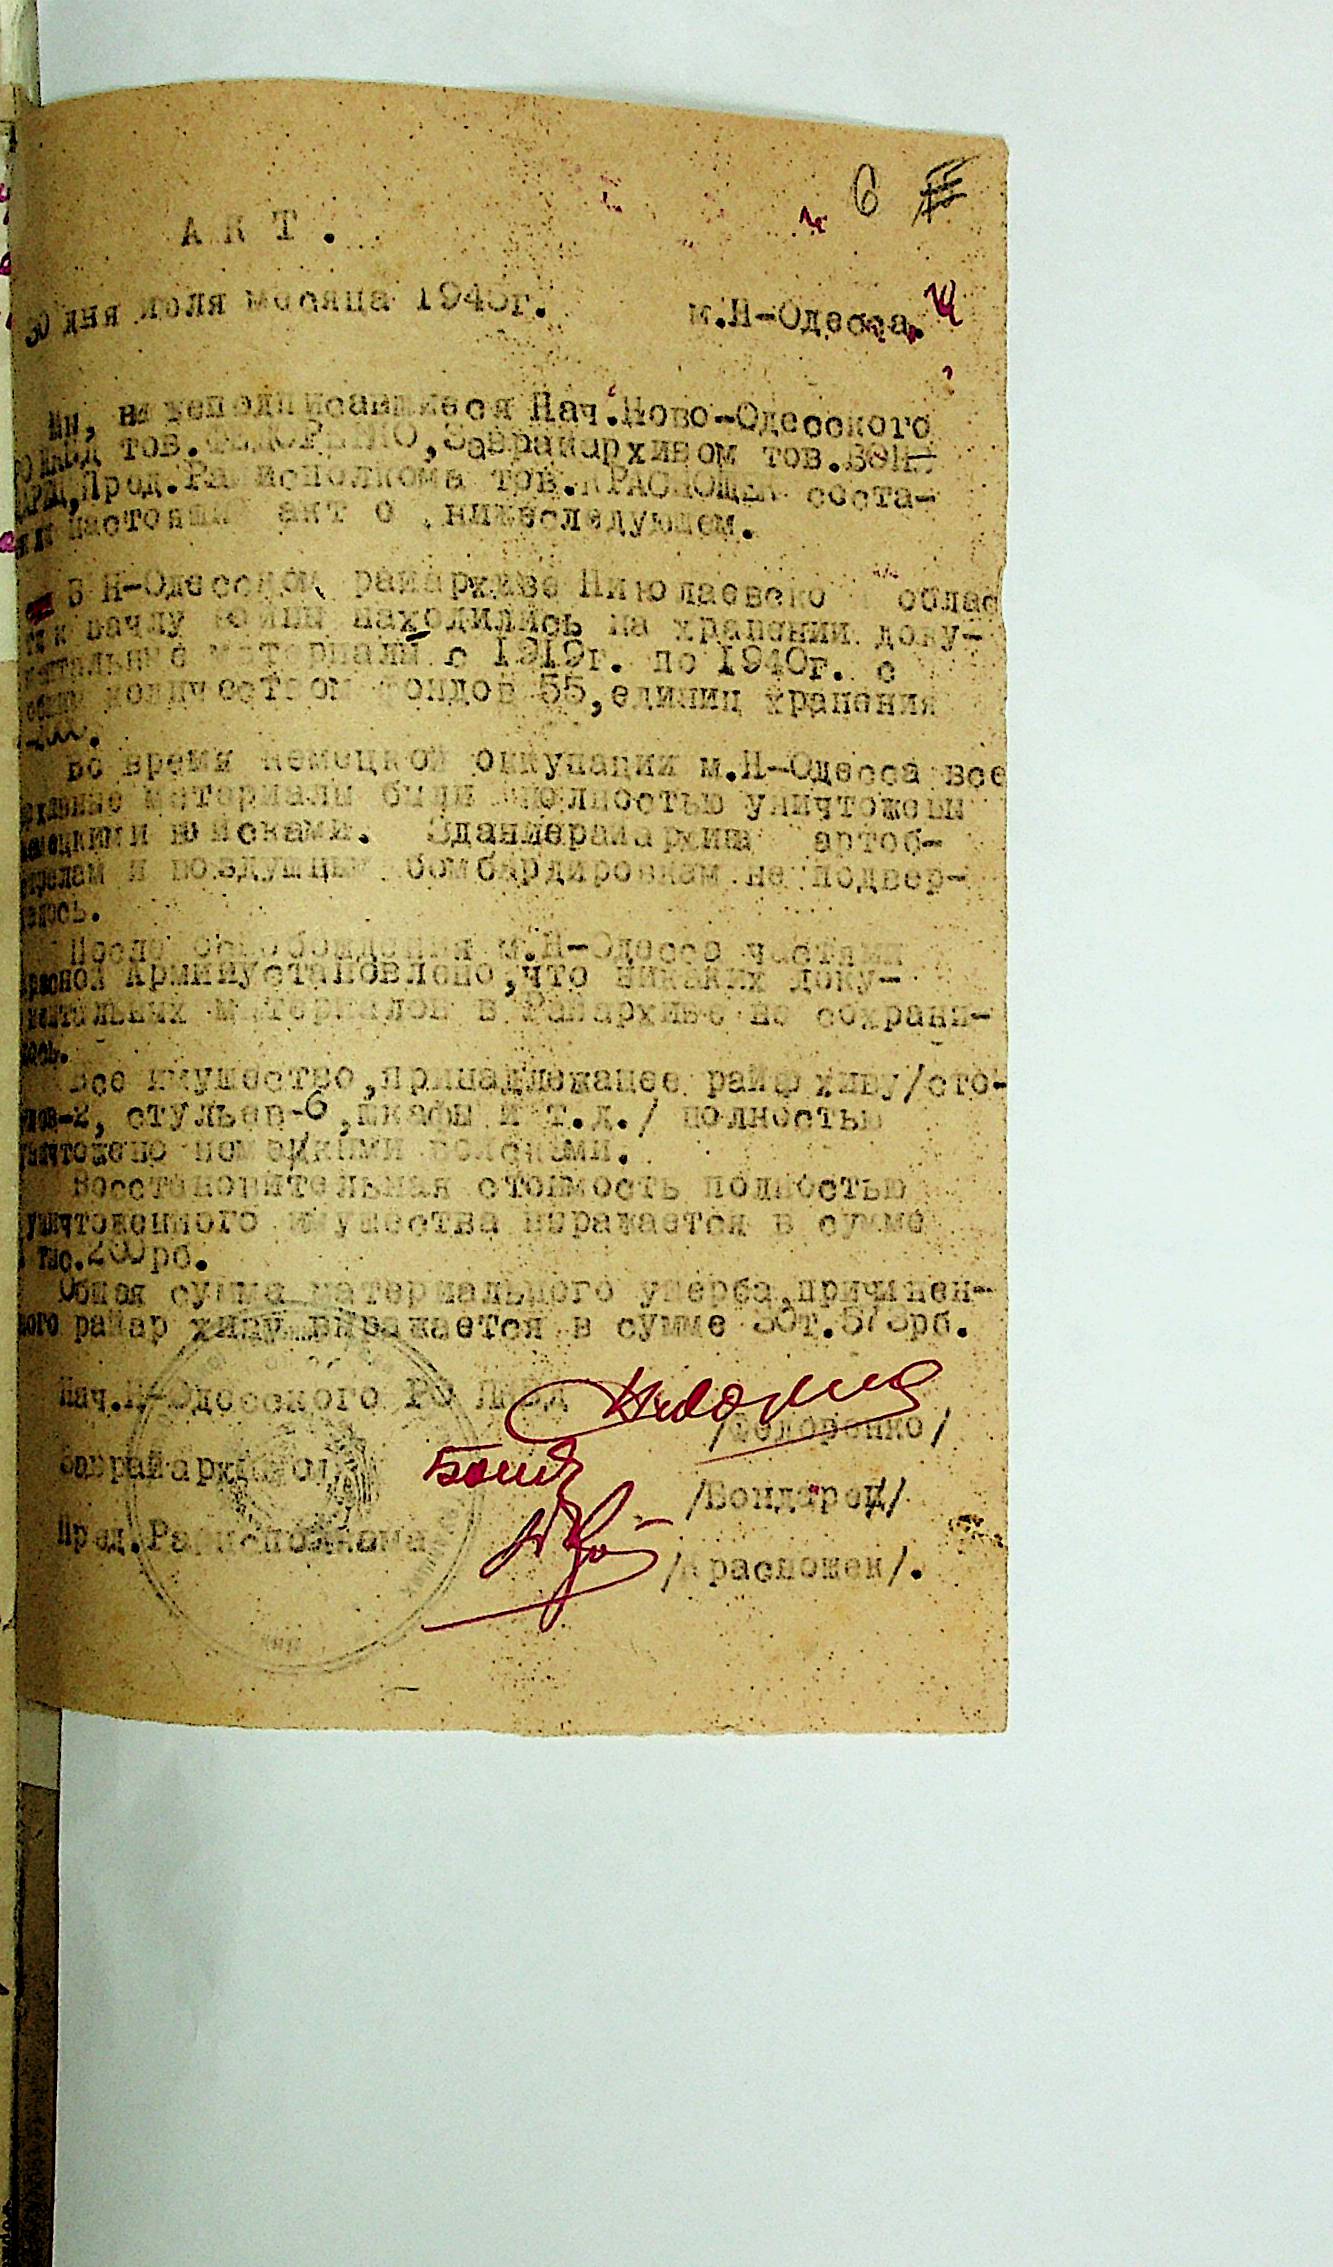 6
А К Т .
30 дня июля месяца 1945г. м.Н-Одесса.
Мы, нижеподписавшиеся Нач.Ново-Одесского
РО НКВД тов.ФЕДОРЕНКО,Заврайархивом тов.БОН-
ДАРЕЦ,Пред.Райисполкома тов.КРАСНОЩЕК соста-
настоящий акт о нижеследующем.
В Н-Одесском райархиве Николаевской облас
к начлу войны находились на хранении доку-
ментальные материалы с 1919г. по 1940г. с
общим количеством фондов 55,единиц хранения
Во время немецкой оккупации м.Н-Одесса все
архивные материалы были полностью уничтожены
немецкими войсками. Зданиерайархива артоб-
стрелам и воздушным бомбардировкам не подвер-
глось.
После освобождения м.Н-Одессо частями
Красной Армииустановлено,что никаких доку-
ментальных материалов в Райархиве не сохрани-
лось.
Все имущество,принадлежащее райархиву/сто-
лов-2, стульев-6,шкафы и т.д./ полностью
уничтожено немецкими войсками.
Восстановительная стоимость полностью
уничтоженного имущества выражается в сумме
тыс.200рб.
Общая сумма материального ущерба,причинен-
ного райархиву выражается в сумме т.573рб.
Нач.Н-Одесского РО НКВД /Федоренко/
Заврайархивом /Бондарец/
Пред.Райисполкома /Красношек/.